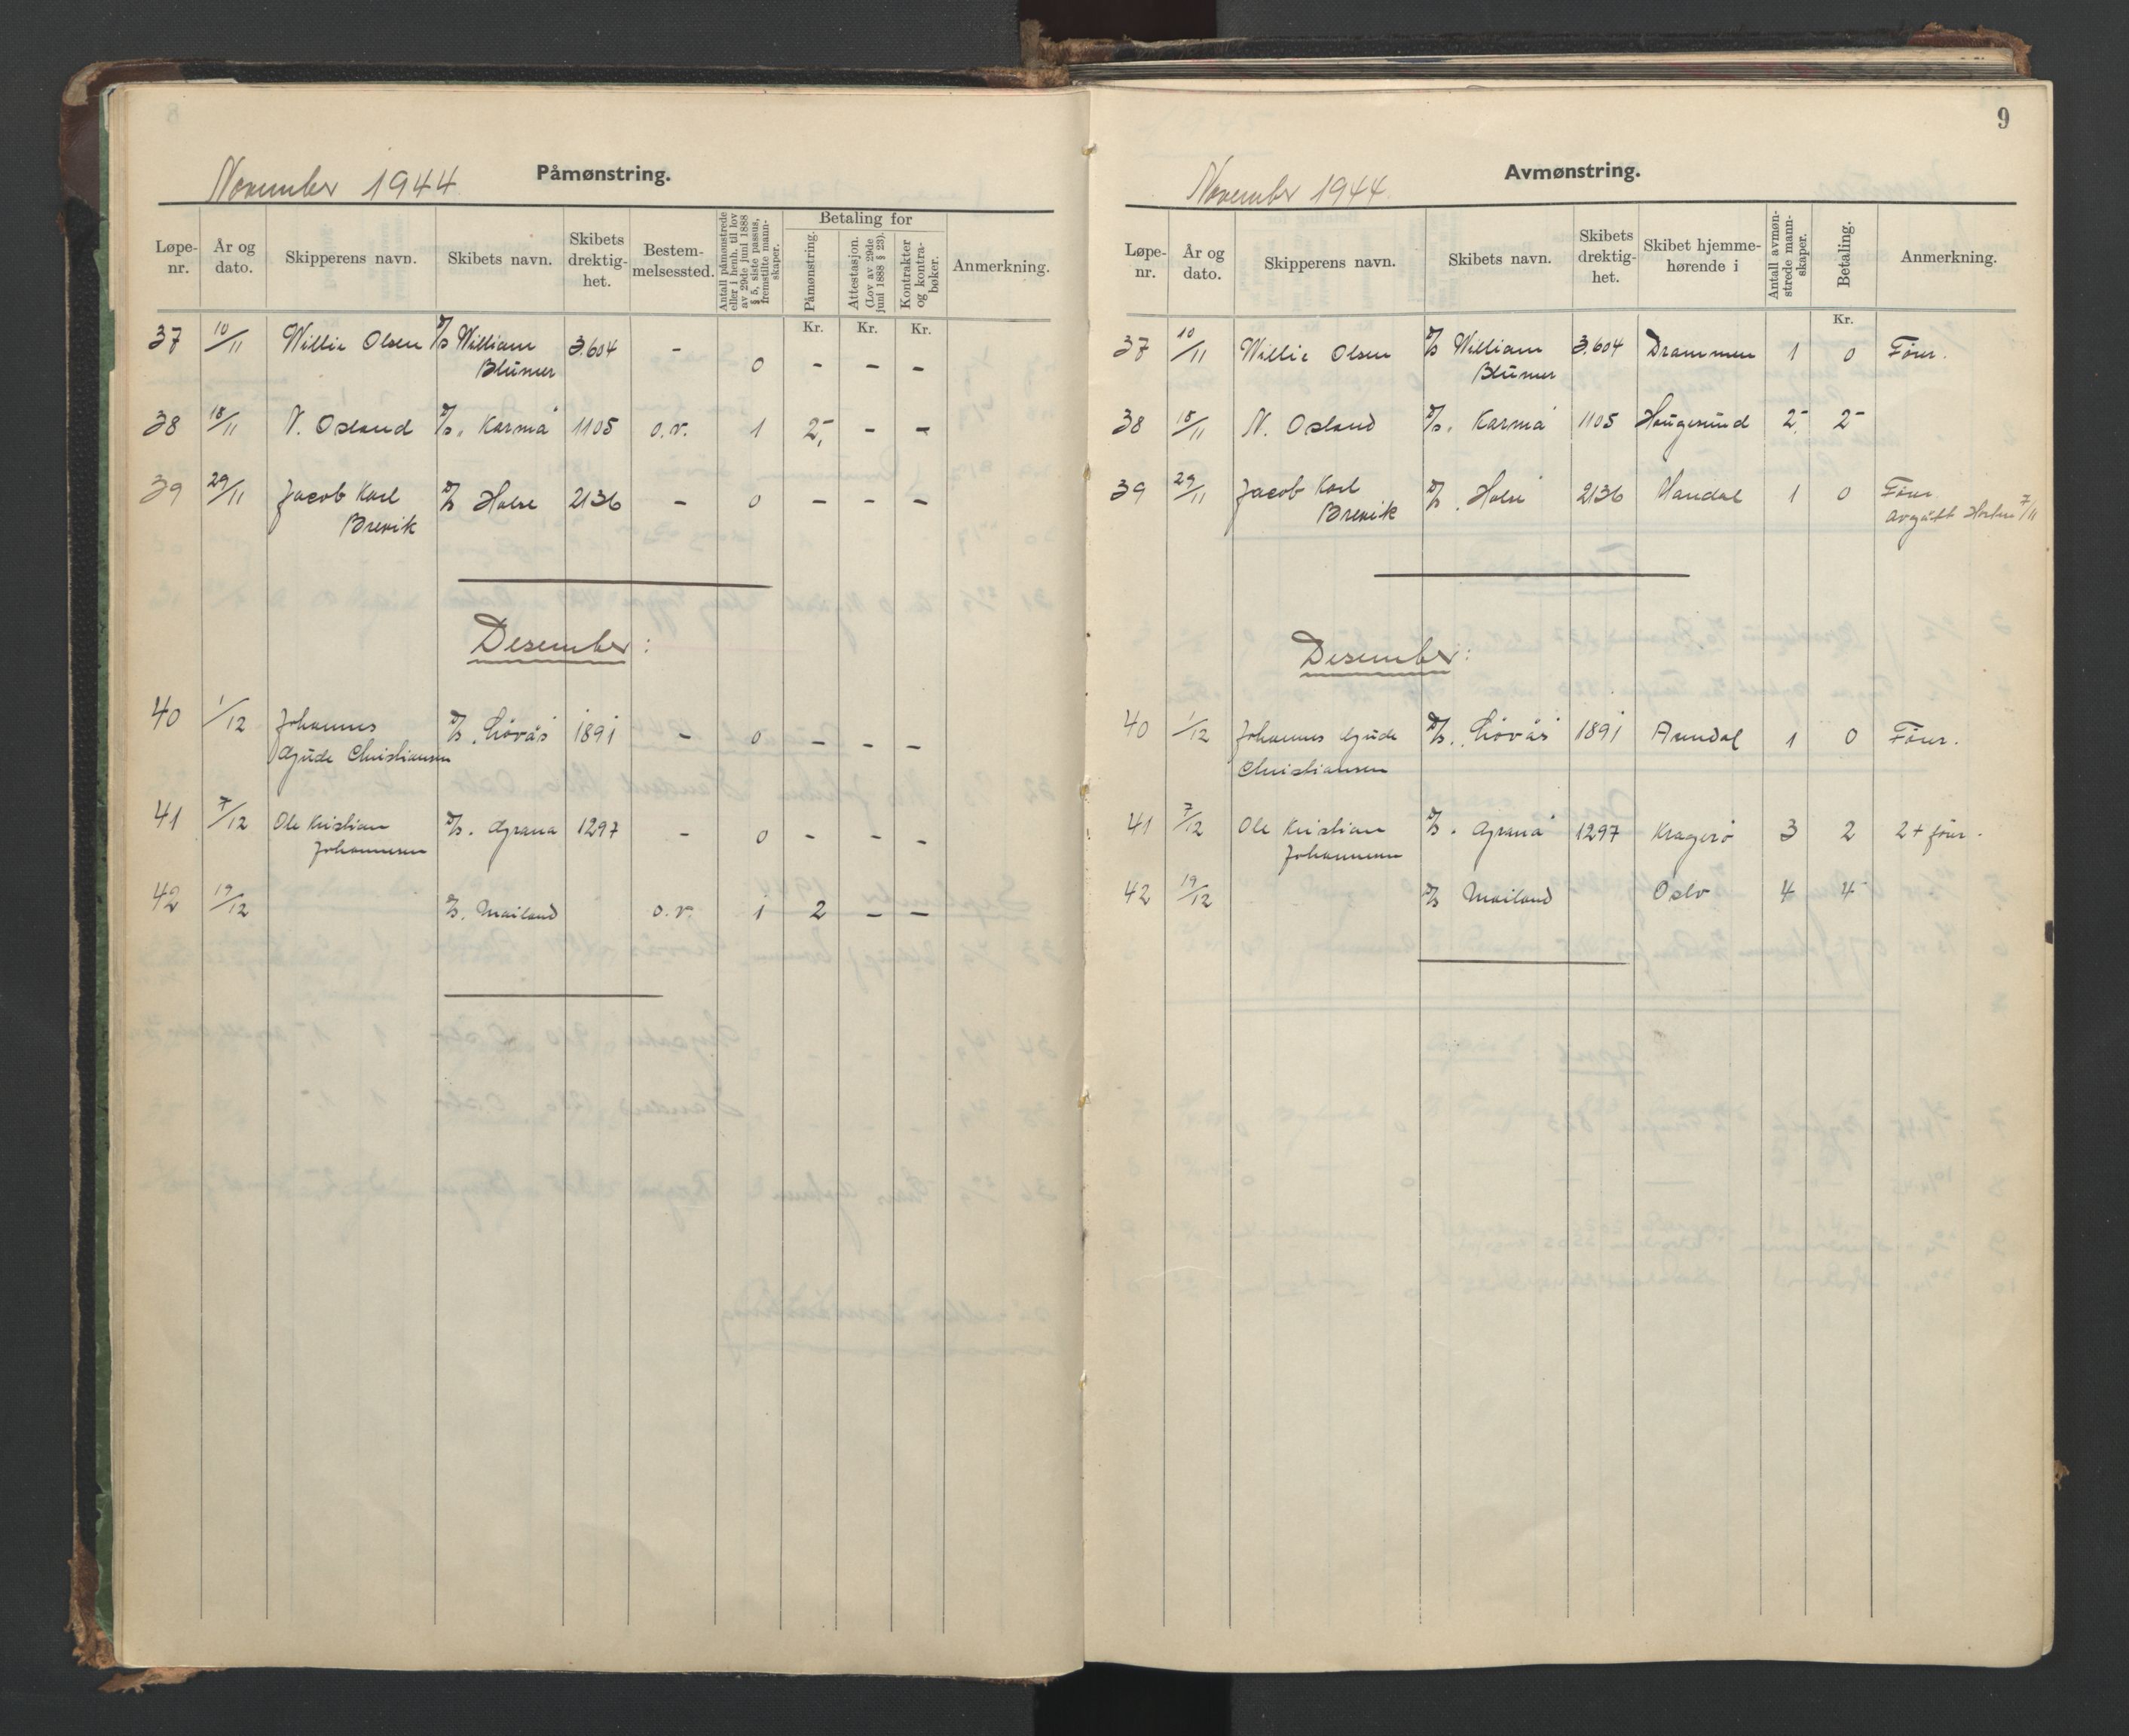 November 1944
Påmønstring.
Løpe-nr. | År og dato. | Skipperens navn. | Skibets navn. | Skibets drektig-het. | Bestem-melsessted. | Antall påmønstrede eller i henh. til lov av 29de juni 1888 § 5, siste passus, fremstilte mann-skaper. | Betaling for | Påmønstring. | Attestasjon. (Lov av 29de juni 1888 § 23). | Kontrakter og kontra-bøker. | Anmerkning.
Kr. Kr. Kr.
37 10/11 Willie Olsen D/S William 3.604 -
Blümer 0 - - -
38 18/11 N. Osland D/S. Karmå 1105 o.r. 1 2,- - -
39 29/11 Jacob Karl D/S Halse 2136 - 0 - - -
Brevik
Desember:
40 1/12 Johannes D/S. Lövås 1891 - 0 - - -
Gjude Christiansen
41 7/12 Ole Kristian D/S. Granå 1297 - 0 - - -
Johannesen
42 19/12 D/S. Mailand o.r. 1 2 - -
9
November 1944.
Avmønstring.
Løpe-nr. | År og dato. | Skipperens navn. | Skibets navn. | Skibets drektig-het. | Skibet hjemme-hørende i | Antall avmøn-strede mann-skaper. | Betaling. | Anmerkning.
Kr.
37 10/11 Willie Olsen D/S William 3.604 Drammen 1 0 Förer.
Blümer
38 18/11 N. Osland D/S. Karmå 1105 Haugesund 2 2-
39 29/11 Jacob Karl D/S. Halse 2136 Mandal 1 0 Förer
Brevik avgått Horten 7/11
Desember:
40 1/12 Johannes Gjude D/S. Lövås 1891 Arendal 1 0 Förer.
Christiansen
41 7/12 Ole Kristian D/S. Granå 1297 Kragerö 3 2 2 + förer.
Johannesen
42 19/12 D/S Mailand Oslo 4 4-